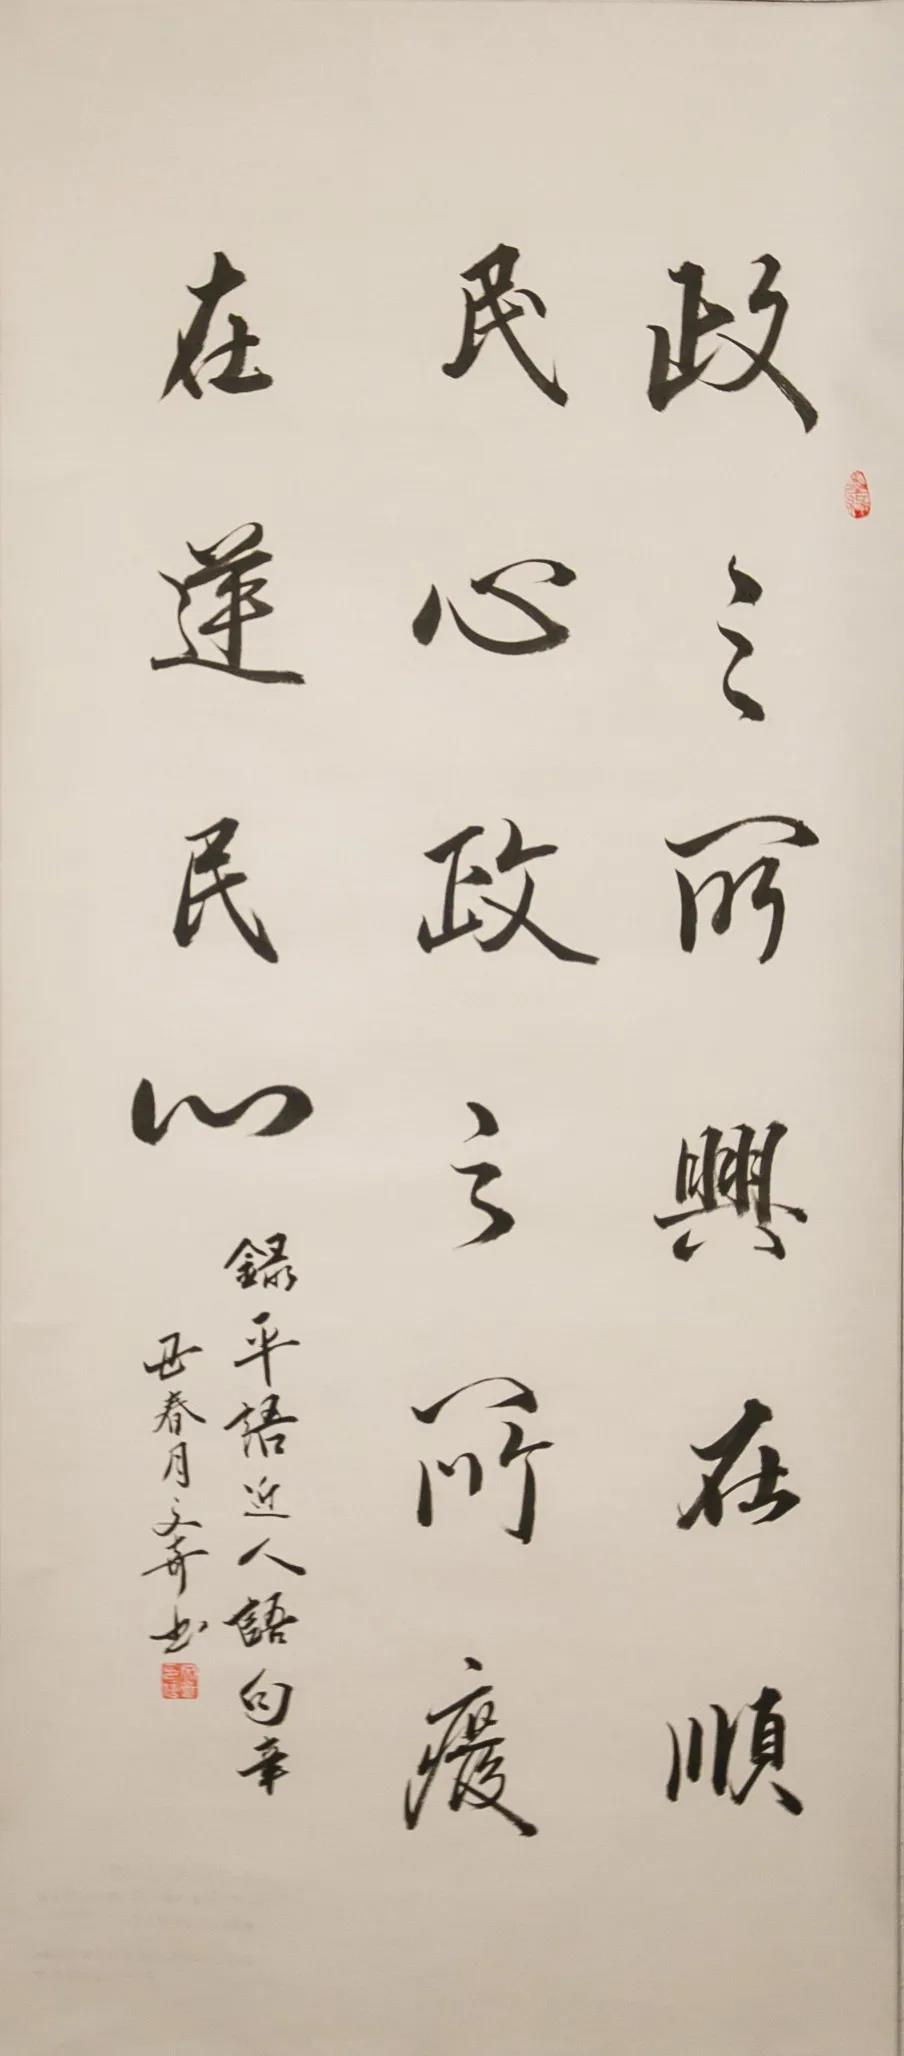 政之所興在順
民心政之所廢
在逆民心
錄平語近人語句辛
丑春月文奇书